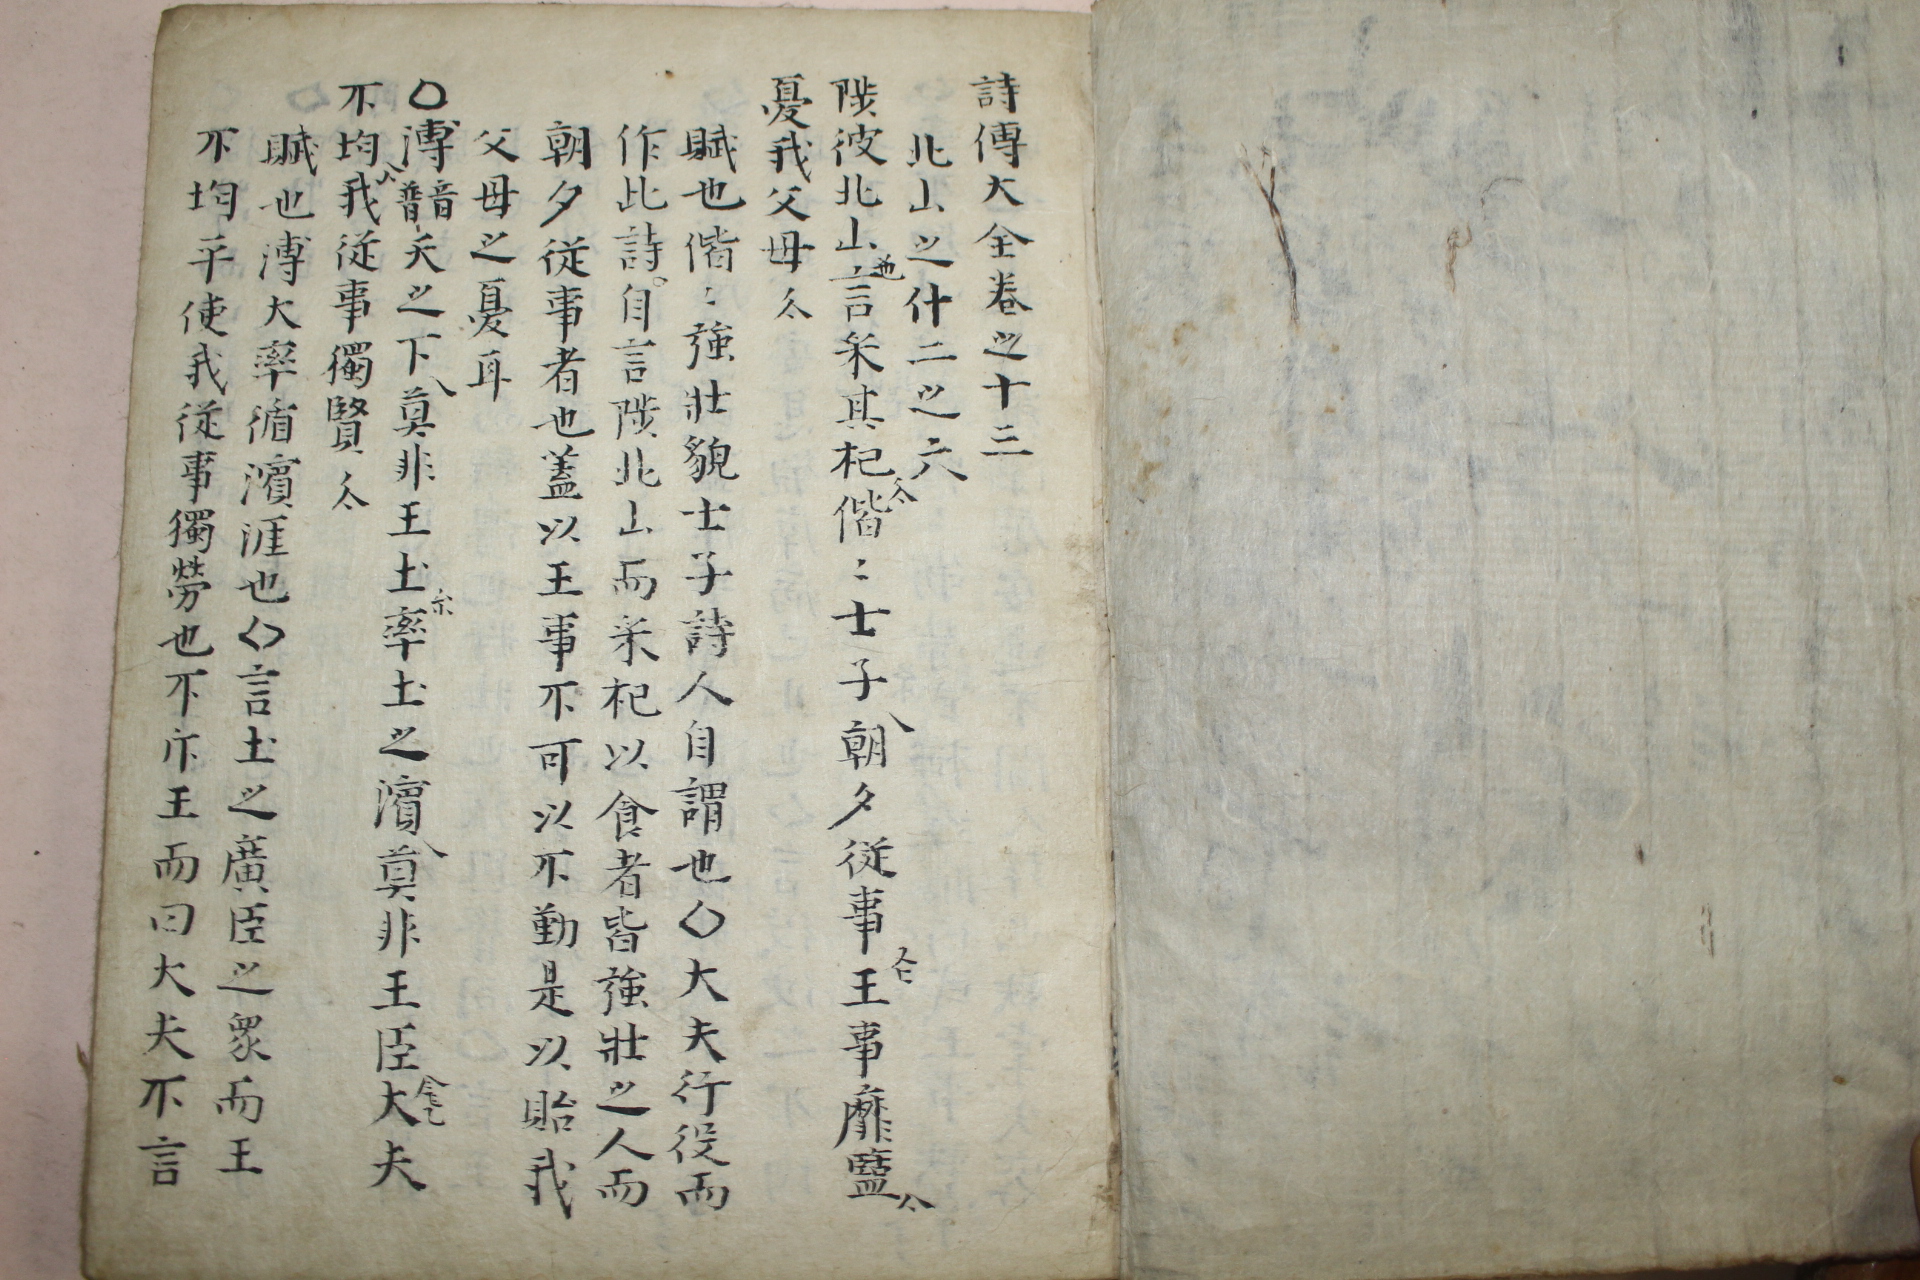 詩傳大全卷之十三
北山之什二之六
陟彼北山言采其杞偕〻士子朝夕從事王事靡盬
憂我父母
賦也偕〻強壯貌士子詩人自謂也○大夫行役而
作此詩自言陟北山而采杞以食者皆強壯之人而
朝夕從事者也蓋以王事不可以不勤是以貽我
父母之憂耳
○溥普音天之下莫非王土率土之濱莫非王臣大夫
不均我從事獨賢
賦也溥大率循濱涯也○言土之廣臣之衆而王
不均平使我從事獨勞也不斥王而曰大夫不言